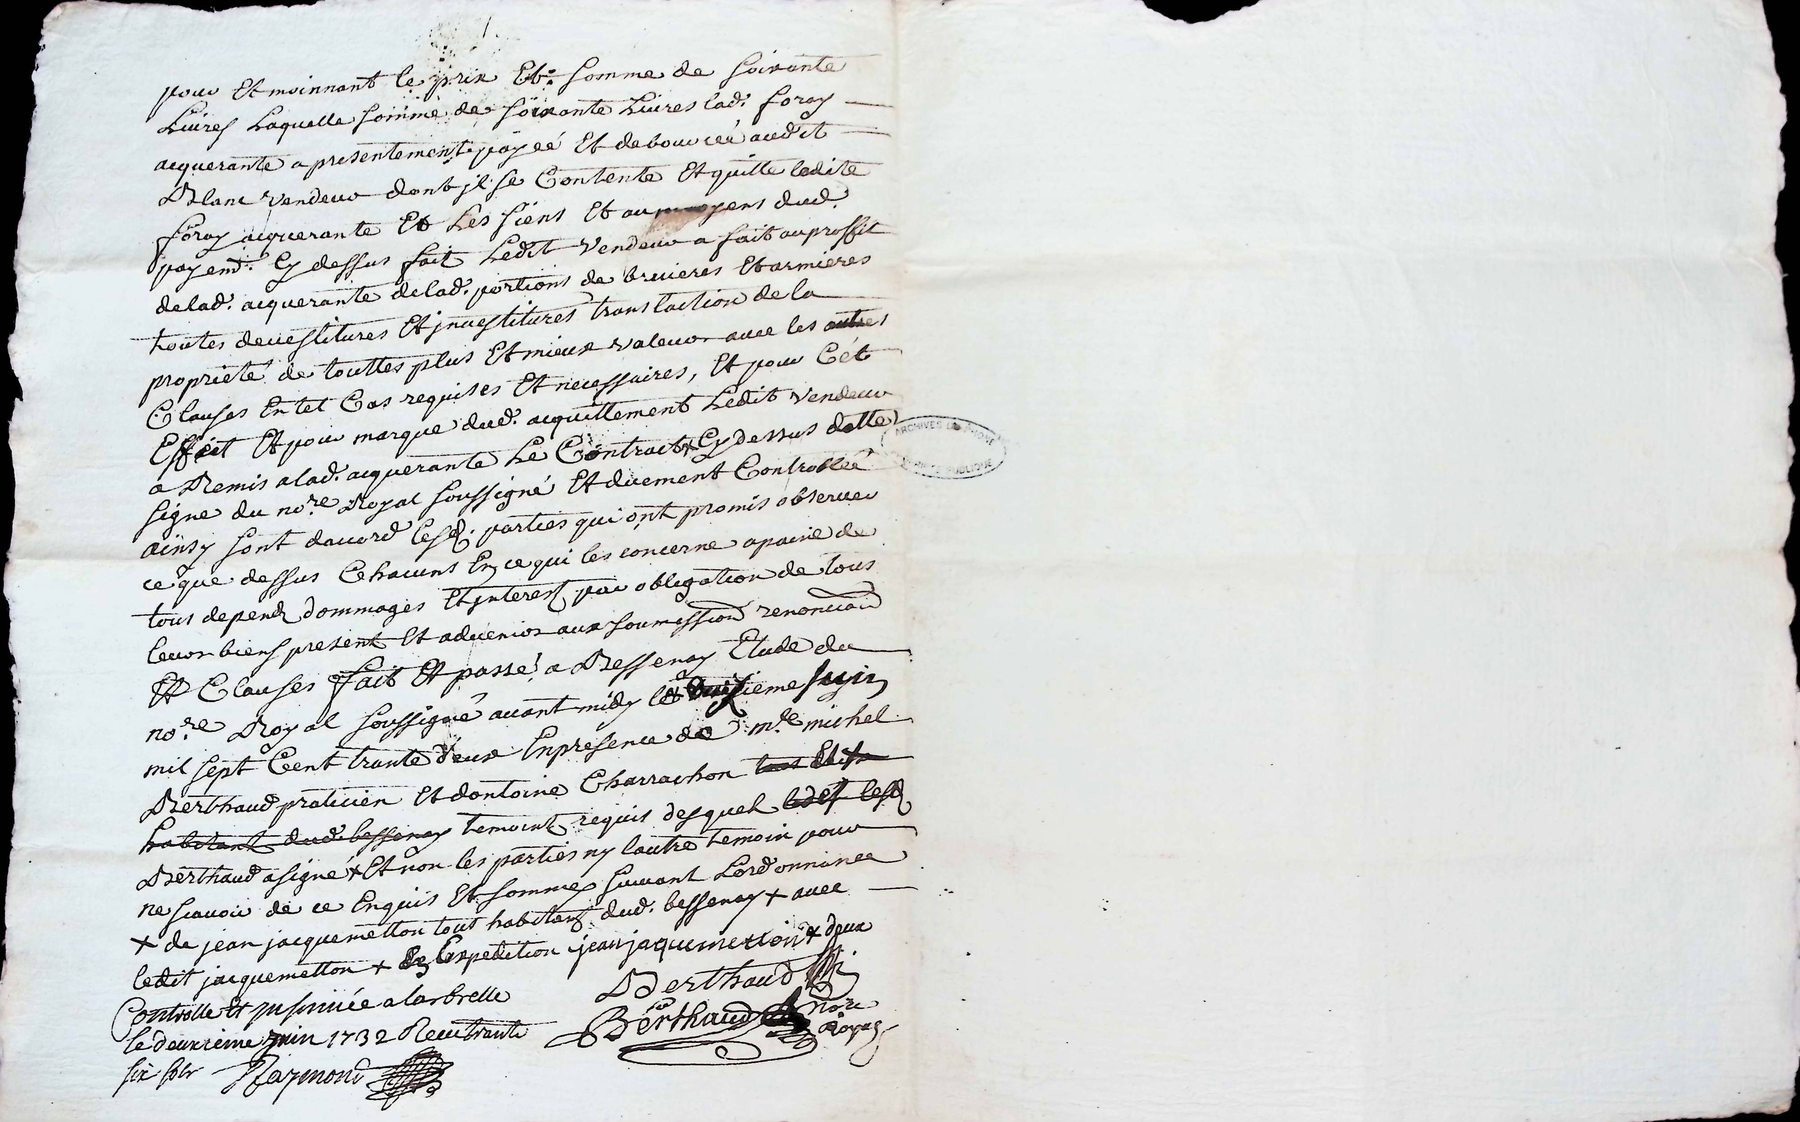 pour Et moinnant le prix Et somme de soixante
Livres Laquelle somme de soixante Livres lad. foray
acquerante a presentement payéé Et debourcéé audit
Blanc vendeur dont jl se Contente Et quitte ladite
foray acquerante Et Les siens Et au moyens dud.
payemt. Cy dessus fait Ledit Vendeur a fait au proffit
de lad. acquerante de lad. portions de bruieres Et armieres
toutes devestitures Et jnvestitures translaction de la
proprieté de touttes plus Et mieux valeur avec les autres
Clauses En tel Cas requises Et necessaires, Et pour Cét
Efféct Et pour marque dud. acquittement Ledit vendeur
a Remis a lad. acquerante Le Contract Cy dessus datte
signe du nore. Royal soussigné Et duement Controlléé
ainsy sont daccord lesd. parties qui ont promis observer
ce que dessus Chacuns En ce qui les concerne a paine de
tous depend dommages Et jnterest par obligation de tous
leur biens present Et advenir aux soumission renonciaõn
Et Clauses fait Et passé a Bessenay Etude du
nore. Royal soussigné avant midy le deuxieme juin
mil sept Cent trante deux En presence de me. michel
Berthaud praticien Et dantoine Charrachon
habitant dud. bessenay temoint requis desquel lesd.
Berthaud a signé + Et non les parties ny lautre temoin pour
ne scavoir de ce Enquis Et sommes suivant Lordonnance
+ de jean jacquemetton tout habitant dud. bessenay + avec
ledit jacquemetton + Expedition jean jaquemetton + deux
Berthaud
Controlle Et jnsinuée a larbrelle
le deuxieme juin 1732 Receu trante
six sols Raymond
Berthaud nore
Royal
ARCHIVES DU RHONE